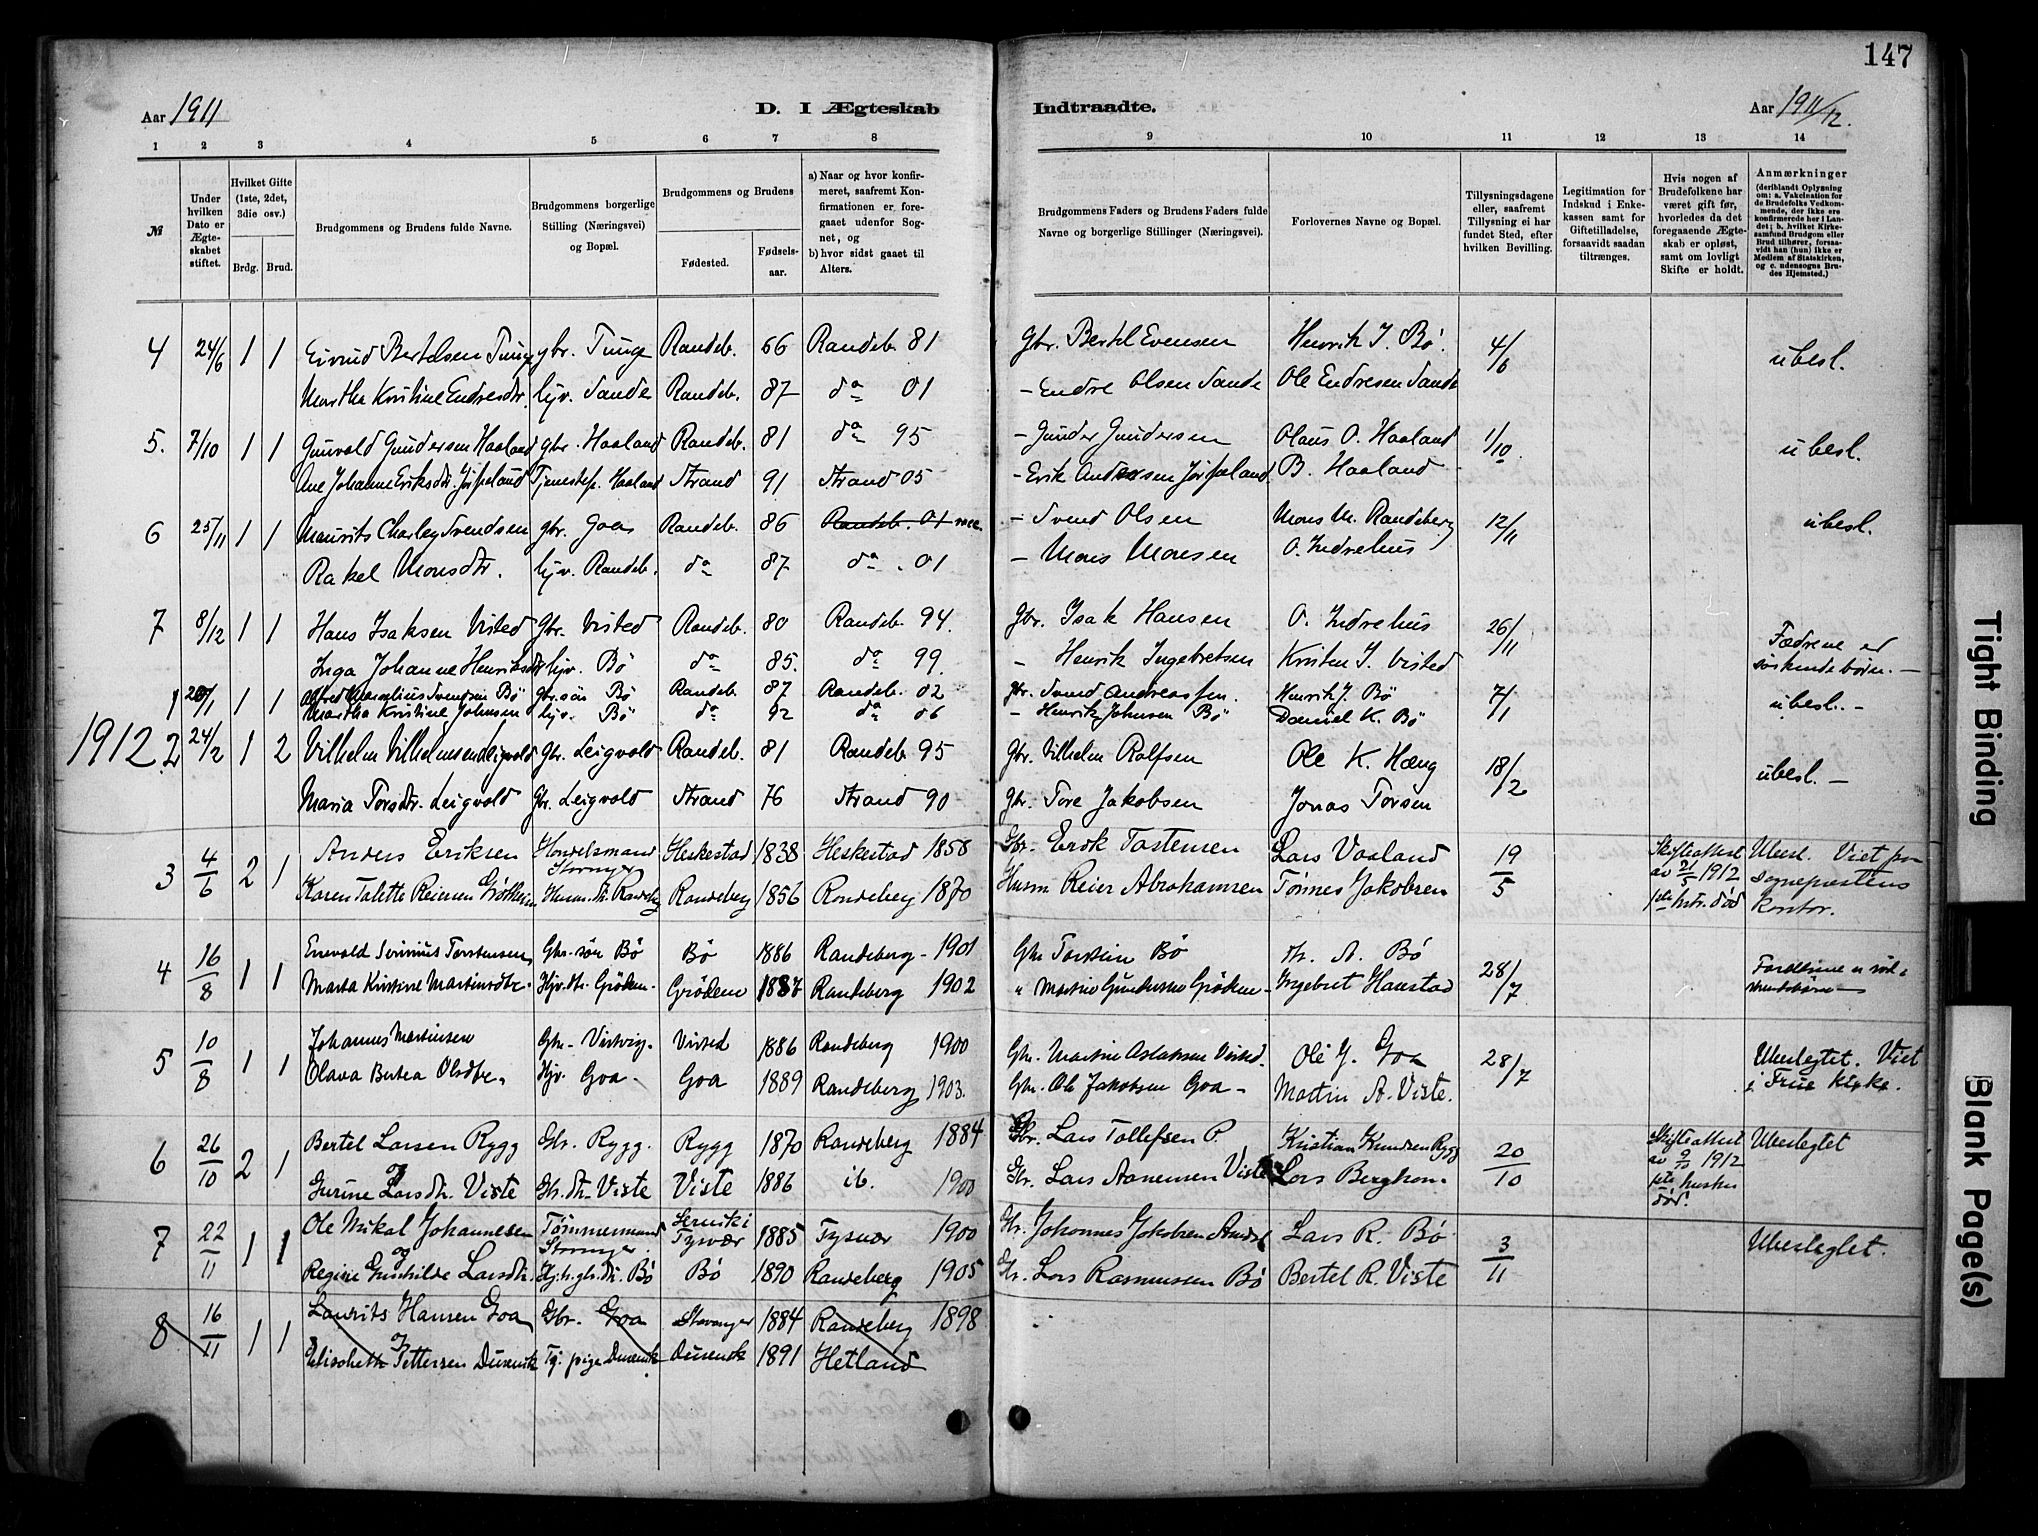 147
Aar 1911
D. I Ægteskab
Indtraadte.
Aar 1911/12.
1 2 3 4 5 6 7 8
9 10 11 12 13 14
№
Under hvilken Dato er Ægteskabet stiftet.
Hvilket Gifte (1ste, 2det, 3die osv.)
Brdg. Brud.
Brudgommens og Brudens fulde Navne.
Brudgommens borgerlige Stilling (Næringsvei) og Bopæl.
Brudgommens og Brudens
Fødested.
Fødselsaar.
a) Naar og hvor konfirmeret, saafremt Konfirmationen er foregaaet udenfor Sognet, og
b) hvor sidst gaaet til Alters.
Brudgommens Faders og Brudens Faders fulde Navne og borgerlige Stillinger (Næringsvei).
Forlovernes Navne og Bopæl.
Tillysningsdagene eller, saafremt Tillysning ei har fundet Sted, efter hvilken Bevilling.
Legitimation for Indskud i Enkekassen samt for Giftetilladelse, forsaavidt saadan tiltrænges.
Hvis nogen af Brudefolkene har været gift før, hvorledes da det foregaaende Ægteskab er opløst, samt om lovligt Skifte er holdt.
Anmærkninger
(deriblandt Oplysning om: a. Vakcination for de Brudefolks Vedkommende, der ikke ere konfirmerede her i Landet; b. hvilket Kirkesamfund Brudgom eller Brud tilhører, forsaavidt han (hun) ikke er Medlem af Statskirken, og c. udensogns Brudes Hjemsted.)
4 24/6 1 1 Eivind Bertelsen Tunge gbr. Tunge Randeb. 66 Randeb. 81 Gbr. Bertel Evensen Henrik J. Bø. 4/6 ubesl.
Martha Kristine Endresdtr. hjv. Sande Randeb. 87 do 01 - Endre Olsen Sande Ole Endresen Sande
5. 7/10 1 1 Gunvald Gundersen Haaland gbr. Haaland Randeb. 81 do 95 - Gunder Gundersen Olaus O. Haaland 1/10. ubesl.
Ane Johanne Eriksdtr. Jørpeland Tjenestep. Haaland Strand 91 Strand 05 - Erik Andersen Jørpeland B. Haaland
6 25/11 1 1 Maurits Charley Svendsen gbr. Goa Randeb. 86 Randeb. 01 - Svend Olsen Mons M. Randeberg 12/11 ubesl.
Rakel Monsdtr. hjv. Randeb. do 87 do . 01 - Mons Monsen O. Indrehus
7 8/12 1 1 Hans Isaksen Visted Gbr. Visted Randeb. 80 Randeb. 94. Gbr. Isak Hansen O. Indrehus 26/11 Fædrene er søskendebørn. -
Inga Johanne Henriksdtr hjv. Bø do 85. do 99. - Henrik Ingebretsen Kristen I. Visted
1 20/1 1 1 Alfred Marselius Svendsen Bø Gbr.søn Bø Randeb. 87 Randeb. 02 gbr. Svend Andreassen. Henrik J. Bø 7/1 ubesl. -
Martha Kristine Johnsen hjv. Bø do 92 do 06 - Henrik Johnsen Bø Daniel K. Bø
1912. 2 24/2 1 2 Vilhelm Vilhelmsen Leigvold Gbr. Leigvold Randeb. 81 Randeb. 95 Gbr. Vilhelm Rolfsen Ole K. Hæng 18/2 ubesl. -
Maria Torsdtr. Leigvold Gbr. Leigvold Strand 76 Strand 90 Gbr. Tore Jakobsen Jonas Torsen
3 4/6 2 1 Anders Eriksen Handelsmand Heskestad 1838 Heskestad 1858 Gbr. Erik Tostensen Lars Vaaland 19/5 Skifteattest av 21/5 1912 1ste hstr. død Ubesl. Viet paa sognepræstens kontor.
Karen Talette Reiersen Husm. dt. Randeberg Randeberg 1856 Randeberg 1870 Husm Reier Abrahamsen Tønnes Jakobsen
4 16/8 1 1 Enevald Severinus Torstensen Gbr. søn Bø Bø 1886 Randeberg - 1901 Gbr Torstein Bø A. Bø 28/7
Marta Kristine Martinsdtr. Hjv. dtr. Grødem. Grødem 1887 Randeberg 1902 " Martin Gundersen Grødem - Ingebret Haustad
5 10/8 1 1 Johannes Martinsen Gbr. Visted 1886 Randeberg 1900 Gbr. Martin Aslaksen Visted. Ole J. Goa 28/7 Ubeslegtet. Viet i Frue kirke.
Olava Bertea Olsdtr. Hjv. Goa. Goa 1889 Randeberg 1903. Gbr. Ole Jakobsen Goa - Martin A. Viste.
6 26/10 2 1 Bertel Larsen Rygg Gbr. Rygg. Rygg 1870 Randeberg 1884 Gbr. Lars Tollefsen R. Kristian Knudsen Rygg 20/10 Skifteattest av 9/10 1912 1ste hustru død. Ubeslegtet
Gurine Larsdtr. Viste Gbr. dtr. Viste Viste 1886 ib. 1900 Gbr. Lars Aanensen Viste Lars Berghom.
7 22/11 1 1 Ole Mikal Johannesen Tømmermand Tysvær 1885 Tysvær 1900 Gbr. Johannes Jakobsen Lars R. Bø 3/11 Ubeslegtet.
og
Regine Gunhilde Larsdtr. Hjh. gbr. dt. Bø Bø 1890 Randeberg 1905 Gbr. Lars Rasmussen Bø Bertel R. Viste
8 16/11 1 1 Laurits Hansen Goa Gbr. Goa Stavanger 1884 Randeberg 1898
og
Elisabeth Pettersen Dusevik Tj. pige Dusevik Dusevik 1891 Hetland
Tight Binding
Blank Page(s)